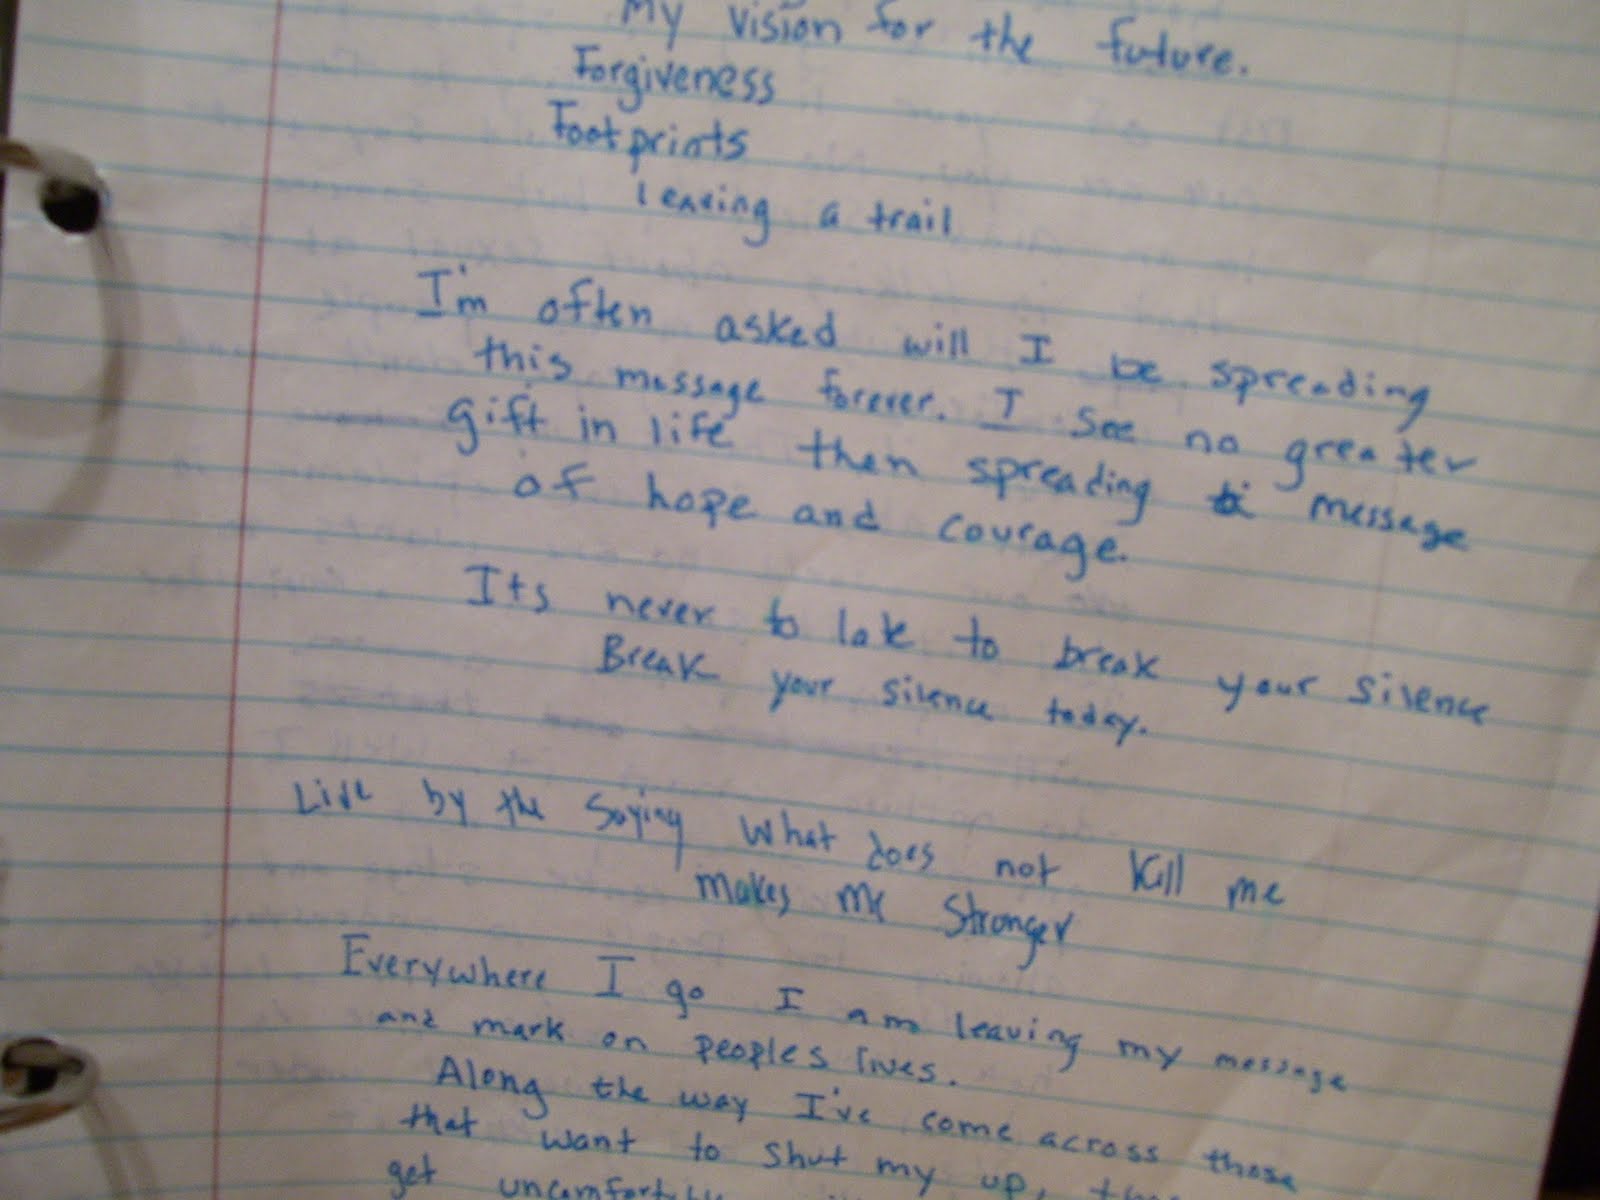 My vision for the future.
Forgiveness
Footprints
leaving a trail
I'm often asked will I be spreading
this message forever. I see no greater
gift in life then spreading a message
of hope and courage.
Its never to late to break your silence
Break your silence today.
Live by the saying what does not kill me
makes me stronger
Everywhere I go I am leaving my message
and mark on peoples lives.
Along the way I've come across those
that want to shut my up,
get uncomfortable